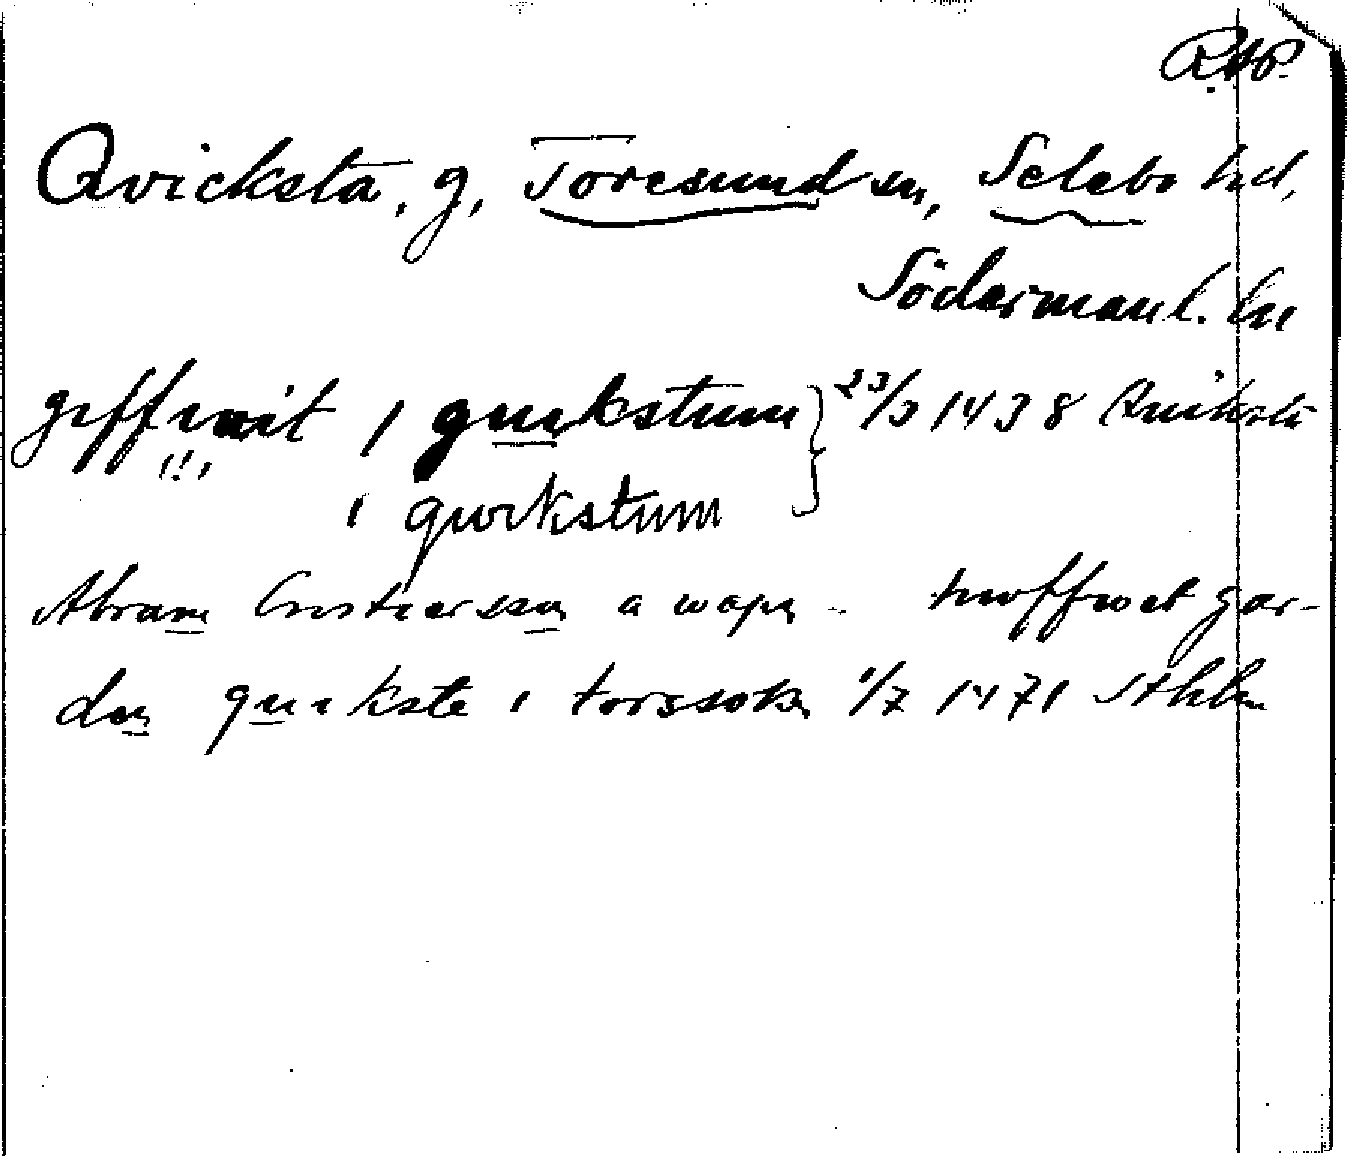 RAP.
Qvicksta, g, Toresund sn, Selebo hd,
Södermanl. ln
giffwit i quikstum } 23/3 1438 Quiksta
(!!)
i qwikstum
Abram Cristiersson a wapn - huffwet gar-
den quikste i torssokn 1/7 1471 Sthlm